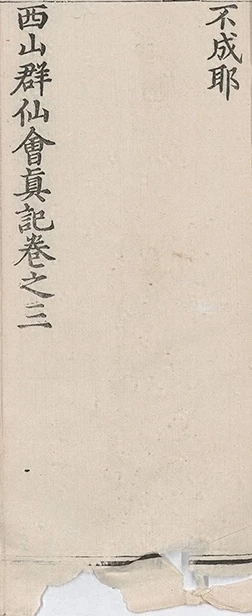 不成耶
西山群仙會真記卷之三